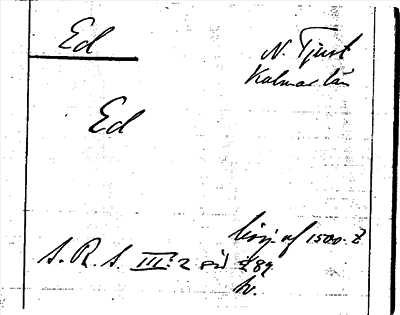 Ed
N. Tjust
Kalmar län
Ed
börj. af 1500-t
S. R. S. III:2 sid 289